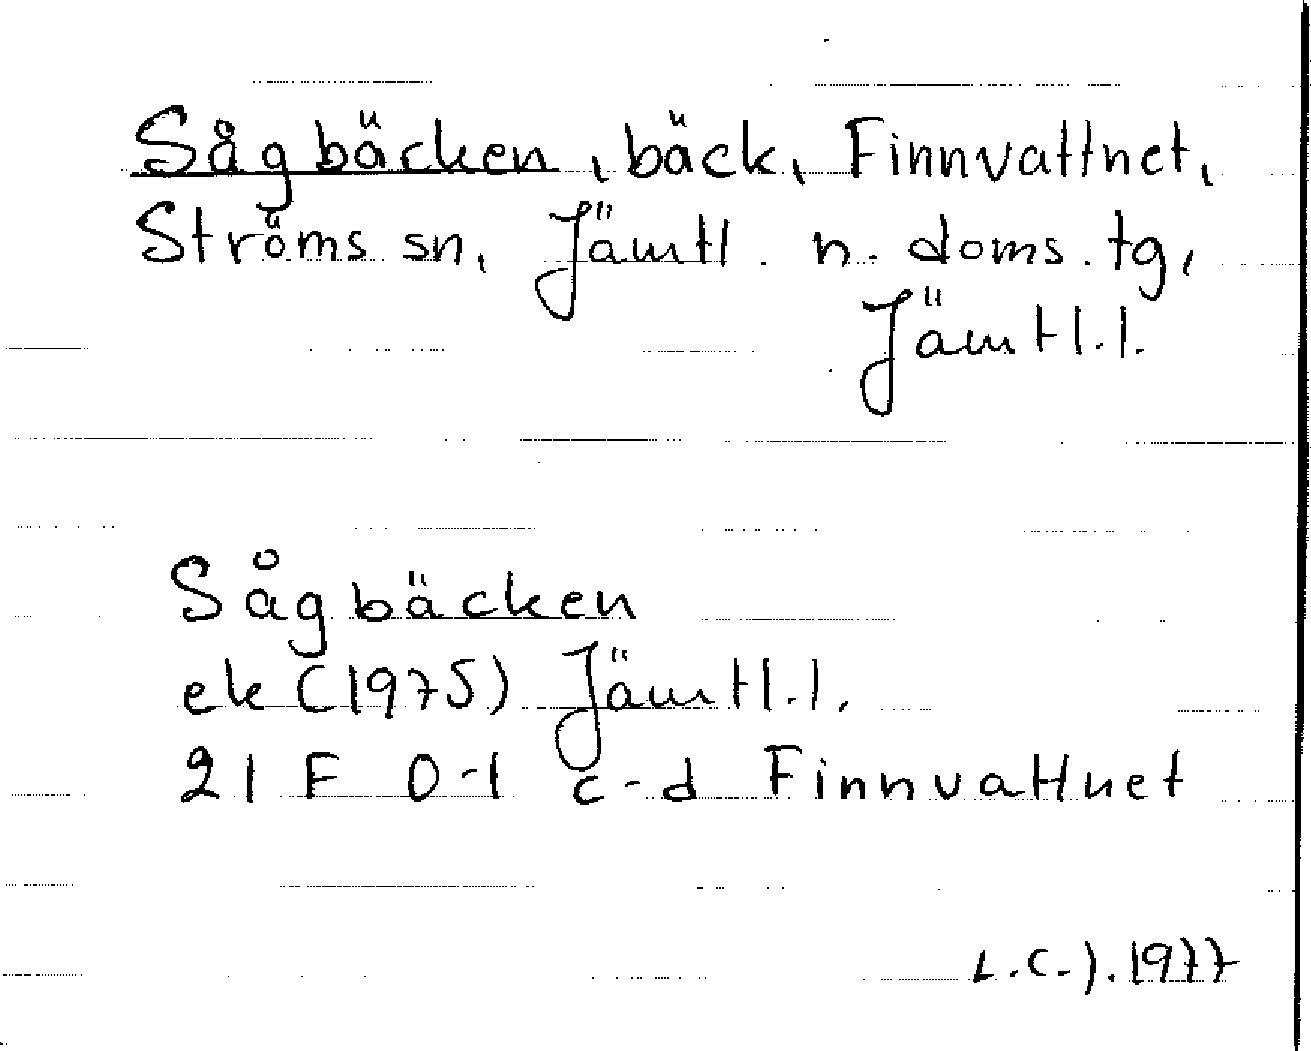 Sågbäcken, bäck, Finnvattnet,
Ströms sn, Jämtl. n. doms. tg,
Jämtl.l.
Sågbäcken
ek (1975) Jämtl.l.
21 F 0-1 c-d Finnvattnet
L.C.J. 1977